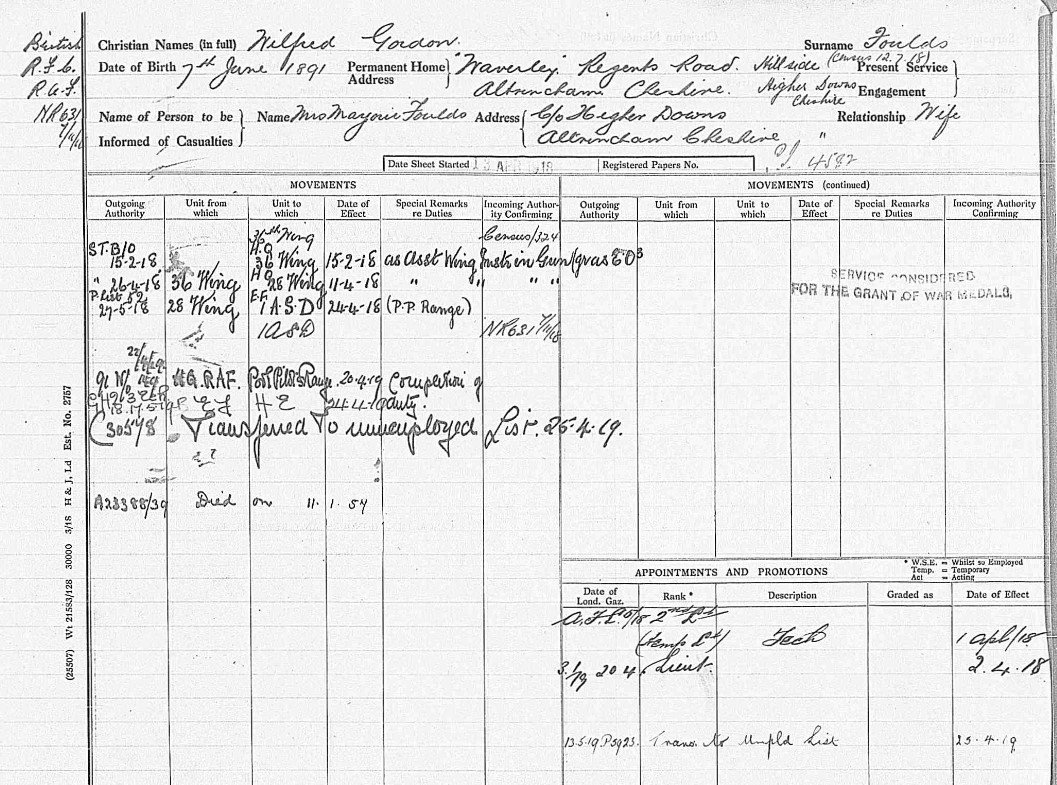 British
R.F.C.
R.A.F.
NR631
Christian Names (in full) Wilfred Gordon. Surname Foulds
Date of Birth 7th June 1891 Permanent Home Address "Waverley" Regents Road. Altrincham Cheshire. Hillside (Census 12.7.18) Higher Downs Cheshire Present Service Engagement
Name of Person to be Informed of Casualties Name Mrs Marjorie Foulds Address C/o Higher Downs Altrincham Cheshire " Relationship Wife
Date Sheet Started 13 APR 1918 Registered Papers No. P. 4592
MOVEMENTS
Outgoing Authority Unit from which Unit to which Date of Effect Special Remarks re Duties Incoming Authority Confirming
36th Wing Census/324
ST.B/O 15-2-18 H.Q 36 Wing 15-2-18 as Asst Wing Insts in Gun/gr as EO3
" 26-4-18 36 Wing HQ 28 Wing 11-4-18 " " " "
P List 52 27-5-18 28 Wing E.F. 1 A.S.D 24-4-18 (P.P. Range)
1 ASD NR631
HQ. RAF. Pool Pilots Range. 20-4-19 Completion of duty.
EF HE 24-4-19
C 30578 Transferred to unemployed List. 25-4-19.
A23388/39 Died on 11. 1. 54
MOVEMENTS (continued)
Outgoing Authority Unit from which Unit to which Date of Effect Special Remarks re Duties Incoming Authority Confirming
SERVICE CONSIDERED
FOR THE GRANT OF WAR MEDALS,
* W.S.E. = Whilst so Employed
Temp. = Temporary
Act = Acting
APPOINTMENTS AND PROMOTIONS
Date of Lond. Gaz. Rank * Description Graded as Date of Effect
2nd Lt
(temp Lt) Tech 1 Apl/18
3/1/19 204. Lieut. 2.4.18
13.5.19 P5923. Trans. to Unpld List 25-4-19
(25507) Wt 21583/128 30000 3/18 H & J, Ld Est. No. 2757